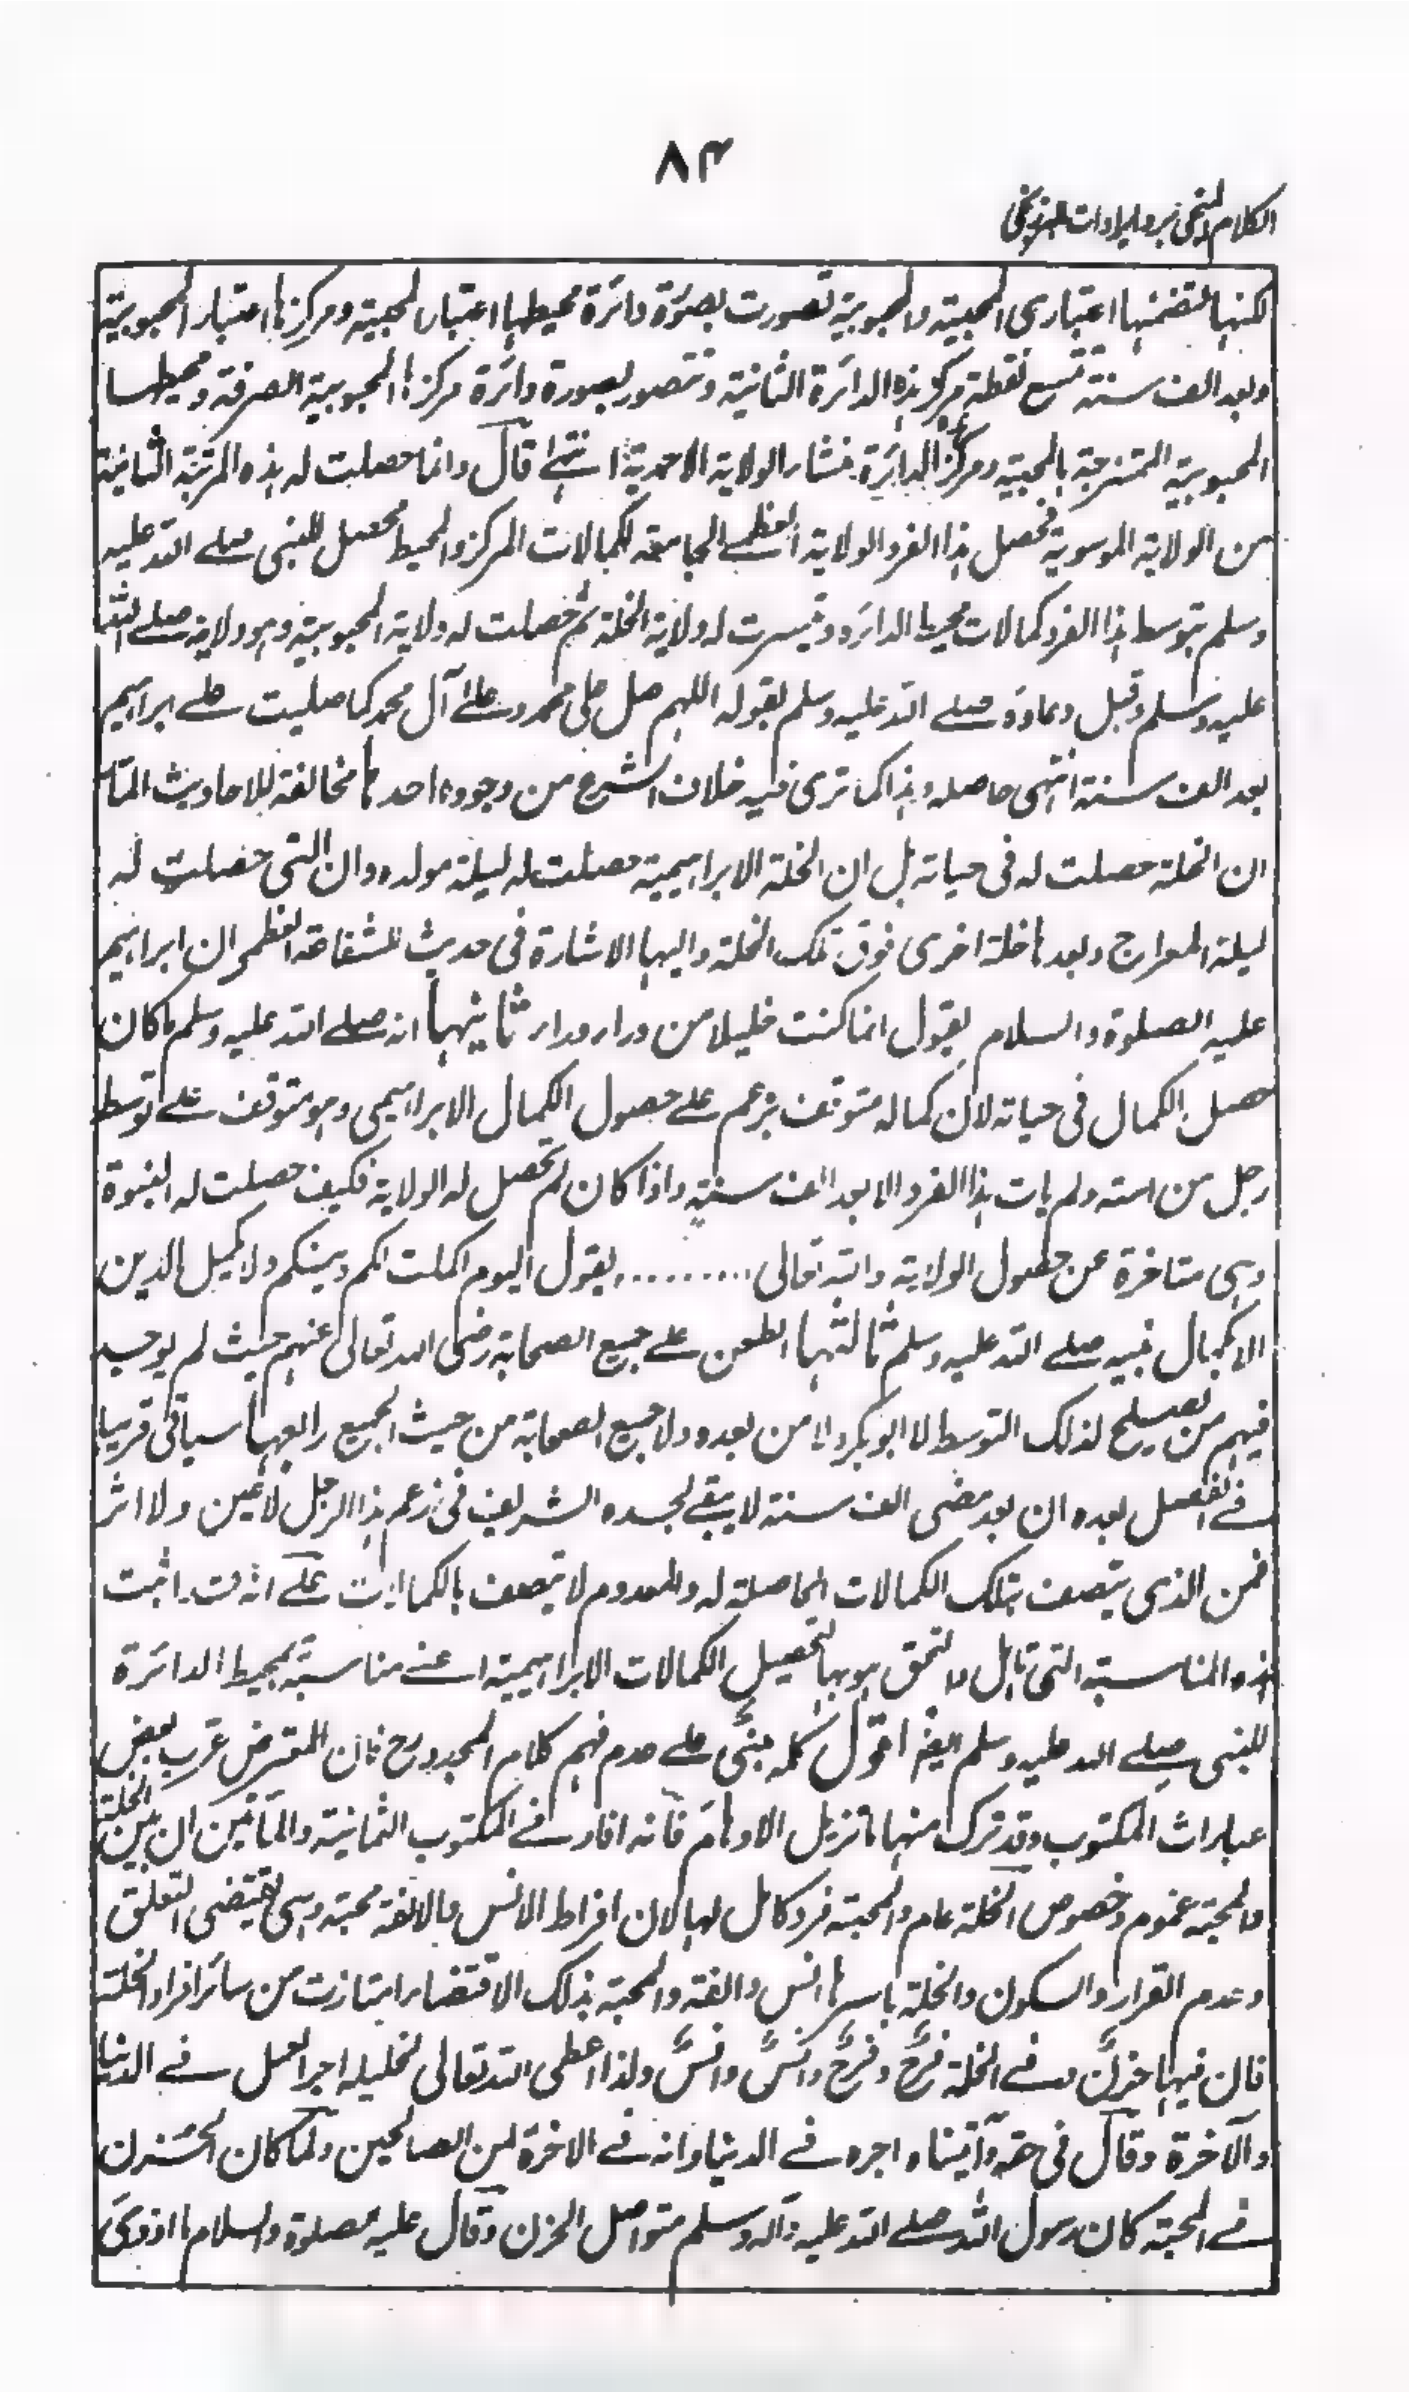 ٨٤
الكلام المنجى برد ايرادات البرزنجى
لكنها لتضمنها اعتبارى المحبية والمحبوبية تصورت بصورة دائرة محيطها اعتبار المحبية ومركزها اعتبار المحبوبية
وبعد الف سنة تتسع نقطة مركز هذه الدائرة الثانية وتتصور بصورة دائرة مركزها المحبوبية الصرفة ومحيطها
المحبوبية الممتزجة بالمحبية ومركز الدائرة منشأ الولاية الاحمدية انتهى قال وانما حصلت له هذه المرتبة الثانية
من الولاية الموسوية فحصل هذا الفرد الولاية العظمى الجامعة لكمالات المركز والمحيط فحصل للنبى صلے الله عليه
وسلم بتوسط هذا الفرد كمالات محيط الدائرة وتيسرت له ولاية الخلة ثم حصلت له ولاية المحبوبية وهو ولاية صلے الله
عليه وسلم وقبل دعاؤه صلے الله عليه وسلم بقوله اللهم صل على محمد وعلى آل محمد كما صليت على ابراهيم
بعد الف سنة انتهى حاصله وهذا كما ترى فيه خلاف الشرع من وجوه احدها مخالفة للاحاديث
ان الخلة حصلت له فى حياته بل ان الخلة الابراهيمية حصلت له ليلة مولده وان التى حصلت له
ليلة المعراج وبعدها خلة اخرى فوق تلك الخلة واليها الاشارة فى حديث الشفاعة العظمى ان ابراهيم
عليه الصلوة والسلام يقول انما كنت خليلا من وراء وراء ثانيها انه صلے الله عليه وسلم ما كان
حصل الكمال فى حياته لان كماله متوقف بزعم على حصول الكمال الابراهيمى وهو متوقف على توسط
رجل من امته ولم يات هذا الفرد الا بعد الف سنة واذا كان لم تحصل له الولاية فكيف حصلت له النبوة
وهى متاخرة عن حصول الولاية والله تعالى .......... يقول اليوم اكملت لكم دينكم ولا كمل الدين
الا بكمال نبيه صلے الله عليه وسلم ثالثها الطعن على جميع الصحابة رضى الله تعالى عنهم حيث لم يوجد
فيهم من يصلح لذلك التوسط لا ابو بكر ولا من بعده ولا جميع الصحابة من حيث الجميع رابعها سياتى قريبا
فے الفصل بعده ان بعد مضى الف سنة لا يبقى لجسده الشريف فى زعم هذا الرجل لا عين ولا اثر
فمن الذى يتصف بتلك الكمالات الحاصلة له والمعدوم لا يتصف بالكمالات على انه اثبت
هذه المناسبة التى لتحصيل الكمالات الابراهيمية اعنے مناسبة بمحيط الدائرة
للنبى صلے الله عليه وسلم ايضا اقول كله مبنى على عدم فهم كلام المجدد رح فان المعترض عرب بعض
عبارات المكتوب وقد ترك منها ما تزيل الاوهام فانه افاد فے المكتوب الثمانية والمأتين ان بين الخلة
والمحبة عموم وخصوص الخلة عام والمحبة فرد كامل لها لان افراط الانس والالفة محبة وهى تقتضى التعلق
وعدم القرار والسكون والخلة باسرها انس والفة والمحبة بذلك الاقتضاء امتازت من سائر افراد الخلة
فان فيها حزن وفے الخلة فرح وفرح وانس وانس ولذا اعطى الله تعالى لخليله اجر العمل فے الدنيا
والآخرة وقال فى حقه وآتيناه اجره فے الدنيا وانه فے الاخرة لمن الصالحين ولما كان الحزن
فے المحبة كان رسول الله صلے الله عليه وآله وسلم متواصل الحزن وقال عليه الصلوة والسلام ما اوذى